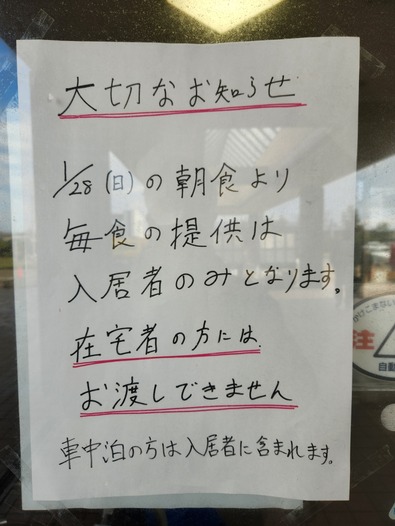 大切なお知らせ
1/28(日)の朝食より
毎食の提供は
入居者のみとなります。
在宅者の方には
お渡しできません
車中泊の方は入居者に含まれます。
注
自動